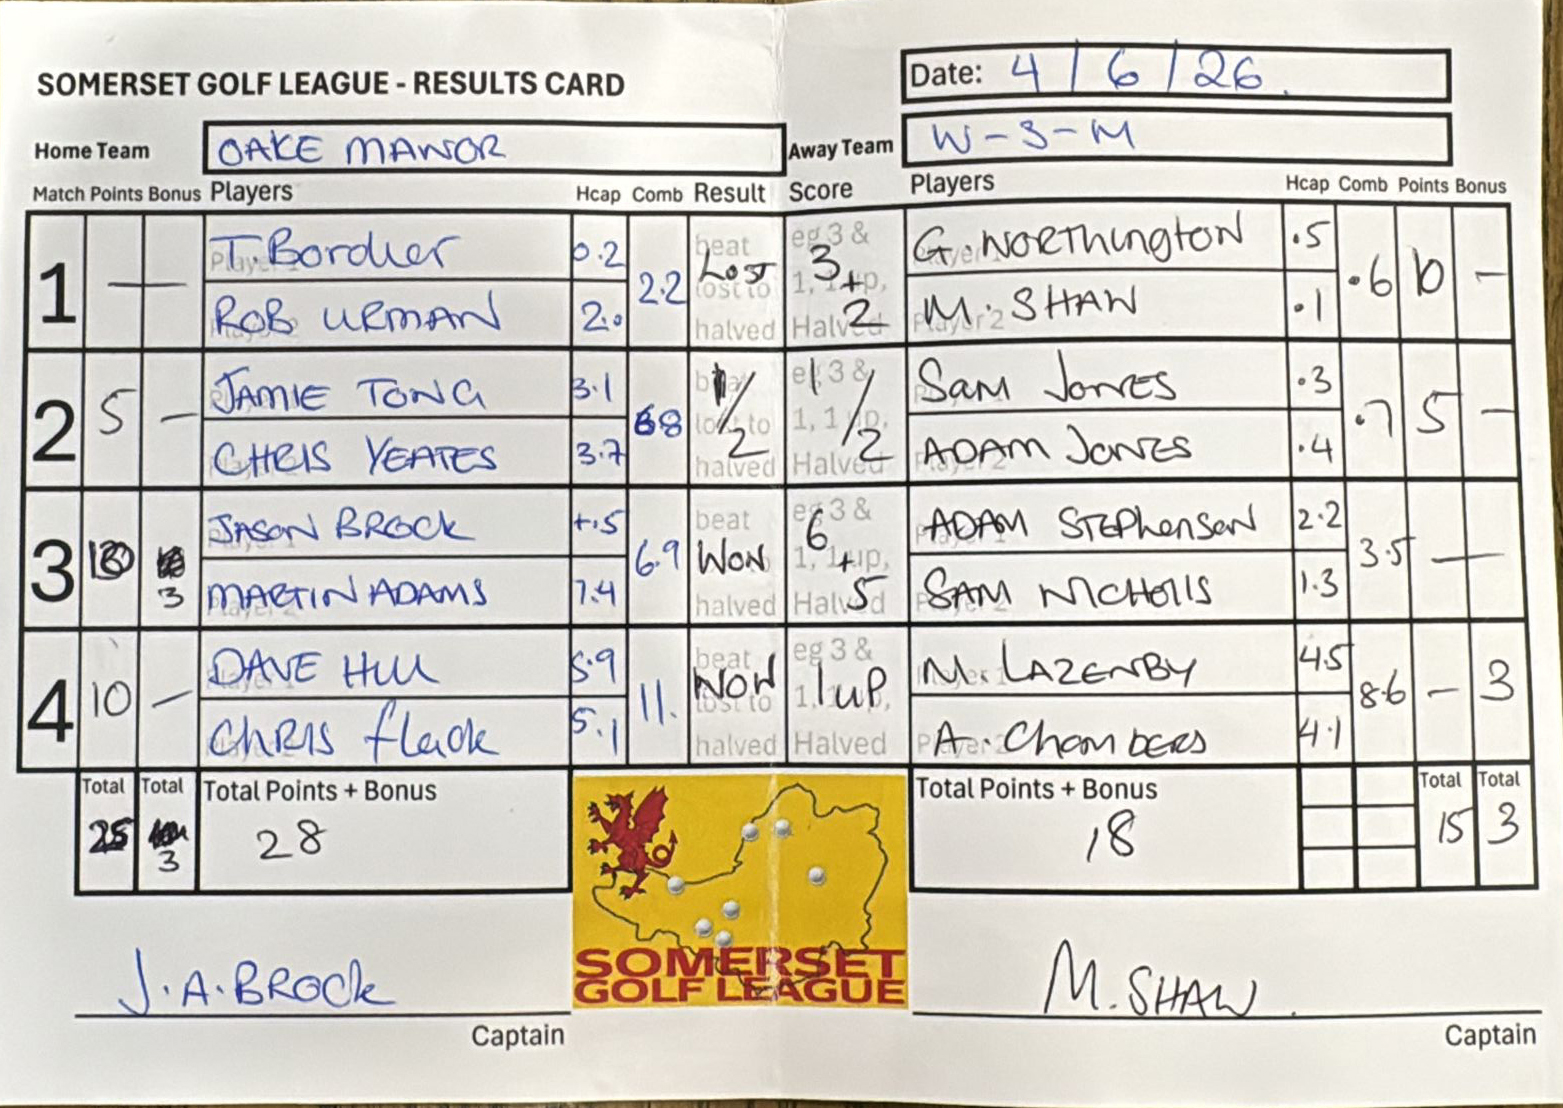 SOMERSET GOLF LEAGUE - RESULTS CARD
Date: 4 / 6 / 26.
Home Team OAKE MANOR Away Team W-S-M
Match Points Bonus Players Hcap Comb Result Score Players Hcap Comb Points Bonus
1 — T. Bordier 0.2 2.2 LOST 3+2 G. NORTHINGTON .5 .6 10 -
ROB URMAN 2.0 M. SHAW .1
2 5 - JAMIE TONG 3.1 6.8 1/2 1/2 SAM JONES .3 .7 5 -
CHRIS YEATES 3.7 ADAM JONES .4
3 10 3 JASON BROCK +.5 6.9 WON 6+5 ADAM STEPHENSON 2.2 3.5 —
MARTIN ADAMS 7.4 SAM NICHOLLS 1.3
4 10 - DAVE HILL 5.9 11. WON 1UP M. LAZENBY 4.5 8.6 - 3
CHRIS flack 5.1 A. CHAMBERS 4.1
beat lost to halved
eg 3 & 1, 1 up, Halved
Total Total Total Points + Bonus Total Points + Bonus Total Total
25 3 28 18 15 3
SOMERSET
GOLF LEAGUE
J.A.BROCK M. SHAW.
Captain Captain